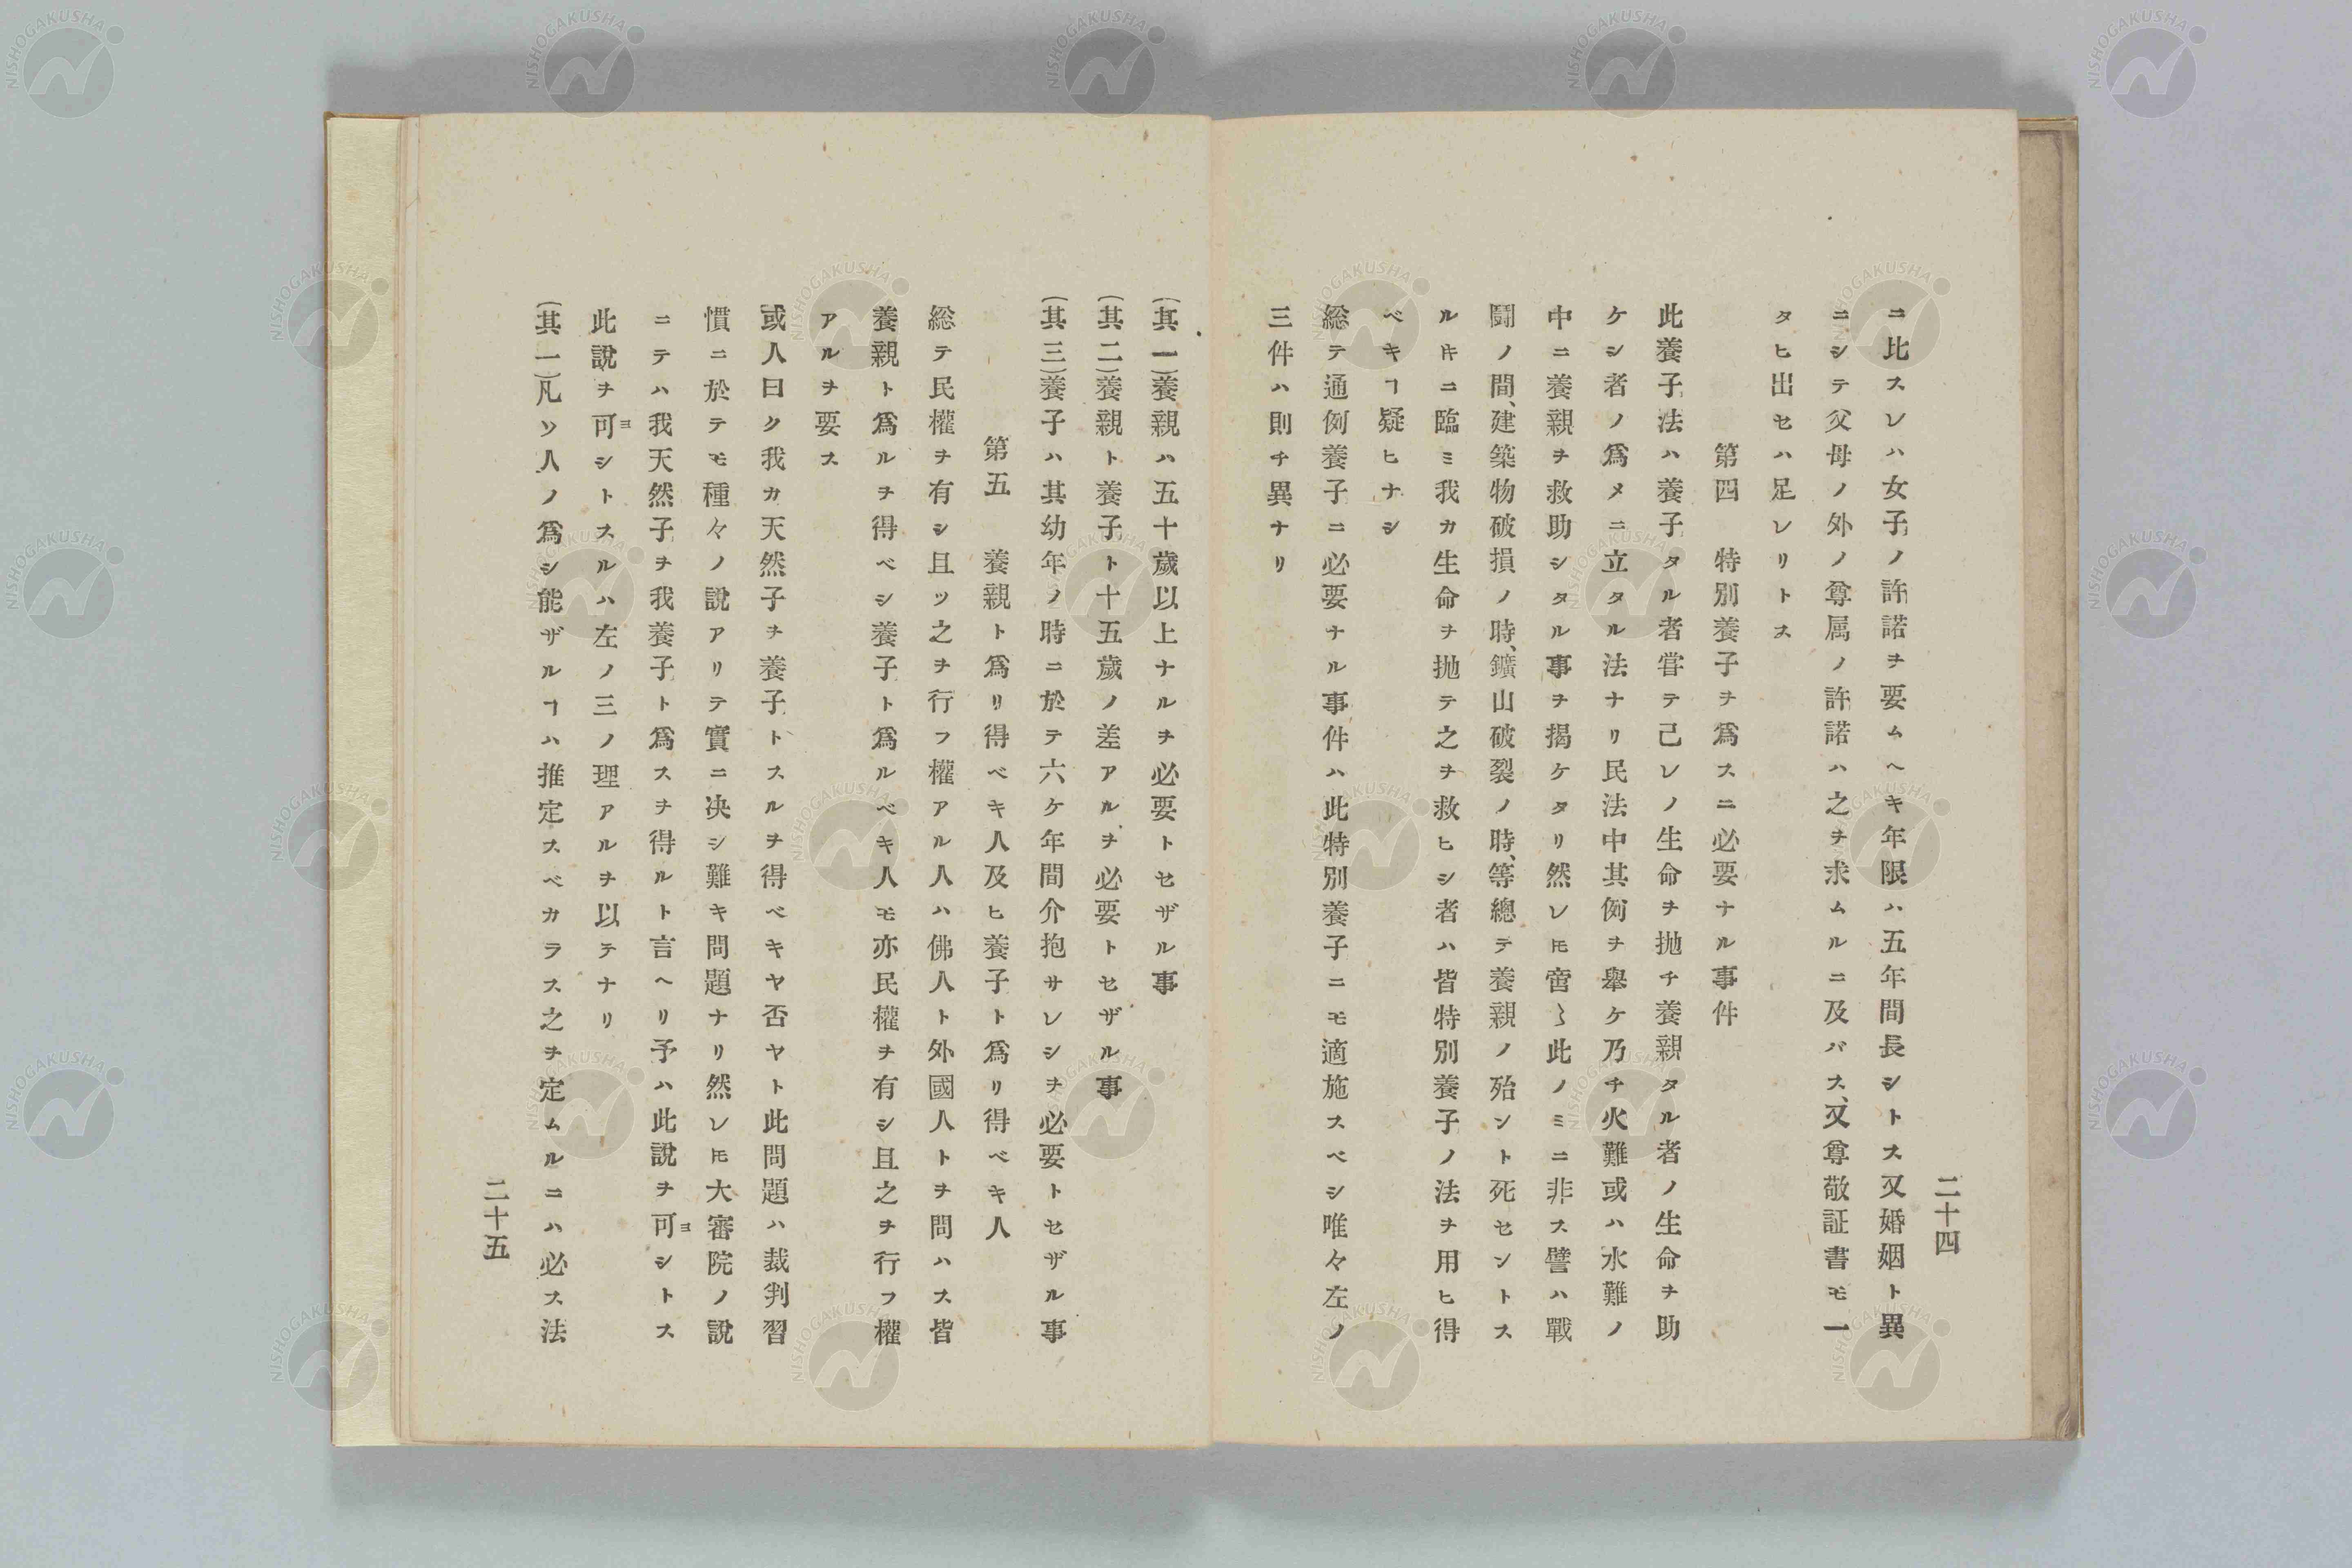 二十四
ニ比スレハ女子ノ許諾ヲ要ムヘキ年限ハ五年間長シトス又婚姻ト異
ニシテ父母ノ外ノ尊属ノ許諾ハ之ヲ求ムルニ及バス、又尊敬証書モ一
タヒ出セハ足レリトス
第四 特別養子ヲ爲スニ必要ナル事件
此養子法ハ養子タル者甞テ己レノ生命ヲ抛チ養親タル者ノ生命ヲ助
ケシ者ノ爲メニ立タル法ナリ民法中其例ヲ擧ケ乃チ火難或ハ水難ノ
中ニ養親ヲ救助シタル事ヲ揭ケタリ然レ𪜈啻〻此ノミニ非ス譬ハ戰
鬪ノ間、建築物破損ノ時、鑛山破裂ノ時、等總テ養親ノ殆ント死セントス
ルキニ臨ミ我カ生命ヲ抛テ之ヲ救ヒシ者ハ皆特別養子ノ法ヲ用ヒ得
ベキヿ疑ヒナシ
総テ通例養子ニ必要ナル事件ハ此特別養子ニモ適施スベシ唯々左ノ
三件ハ則チ異ナリ
(其一)養親ハ五十歲以上ナルヲ必要トセザル事
(其二)養親ト養子ト十五歲ノ差アルヲ必要トセザル事
(其三)養子ハ其幼年ノ時ニ於テ六ケ年間介抱サレシヲ必要トセザル事
第五 養親ト爲リ得ベキ人及ヒ養子ト爲リ得ベキ人
総テ民權ヲ有シ且ツ之ヲ行フ權アル人ハ佛人ト外國人トヲ問ハス皆
養親ト爲ルヲ得ベシ養子ト爲ルベキ人モ亦民權ヲ有シ且之ヲ行フ權
アルヲ要ス
或人曰ク我カ天然子ヲ養子トスルヲ得ベキヤ否ヤト此問題ハ裁判習
慣ニ於テモ種々ノ說アリテ實ニ决シ難キ問題ナリ然レ𪜈大審院ノ說
ニテハ我天然子ヲ我養子ト爲スヲ得ルト言ヘリ予ハ此說ヲ可ヨシトス
此說ヲ可ヨシトスルハ左ノ三ノ理アルヲ以テナリ
(其一)凡ソ人ノ爲シ能ザルヿハ推定スベカラス之ヲ定ムルニハ必ス法
二十五